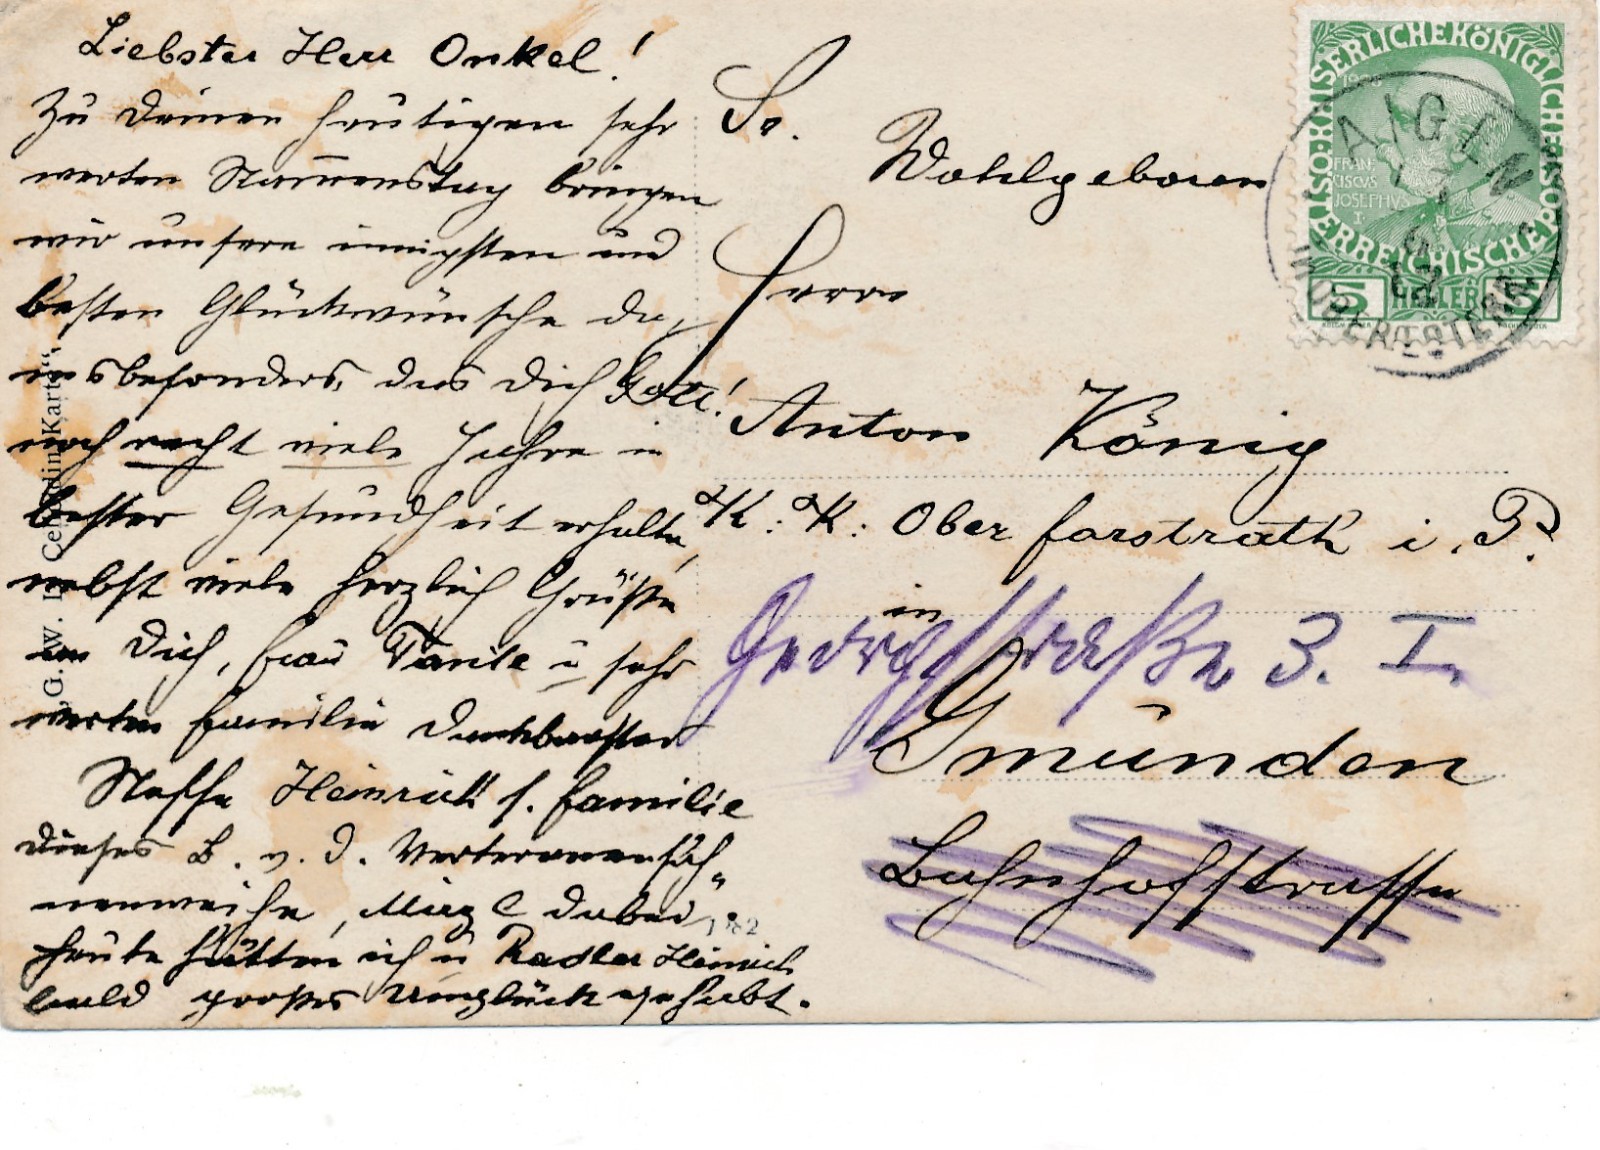 Liebster Herr Onkel!
Zu Deinen heutigen sehr
werten Namenstag bringen
wir unsere innigsten und
besten Glückwünsche dar,
insbesonders, das Dich Gott!
noch recht viele Jahre in
bester Gesundheit erhalte,
nebst viele herzlich Grüße
an Dich, Frau Tante u sehr
werten Familie dankbarster
Neffe Heinrich s. Familie
dieses B. v. d. Verteranenfah-
nenweihe, Mirzl dabei.
heute hätten ich u Radler Heinrich
bald großes Unglück gehabt.
Sr. Wohlgeboren
Herrn
Anton König
K: K: Oberforstrath i. P.
in
Georgstraße 3. I.
Gmünden
Bahnhofstrasse
G. W. I. Celloidin-Karte"
KAISERLICHE KÖNIGLICHE
ÖSTERREICHISCHE POST
1908
FRAN-
CISCUS
JOSEPHVS
I
5 HELLER 5
AIGEN
IN OBEROESTERR.